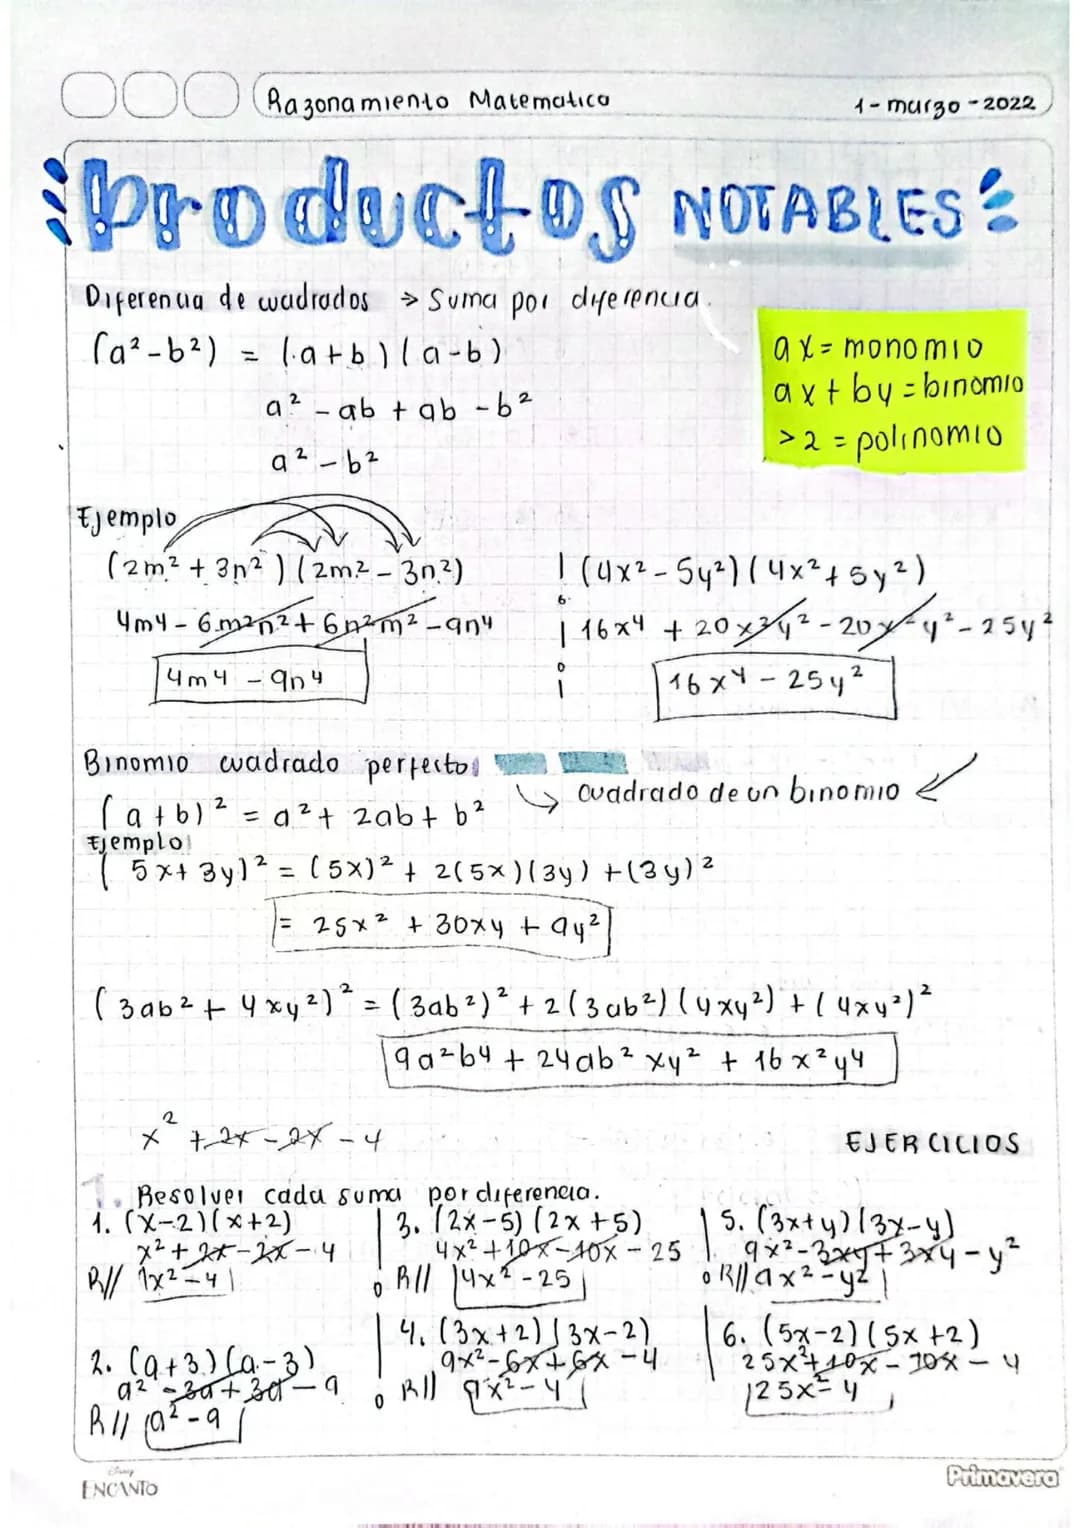 Razonamiento Matematico
1-marzo-2022
Productos NOTABLES
Diferencia de cuadrados → Suma por diferencia.
(a² - b²) = (a+b)(a-b)
a² - ab + ab - b²
a² - b²
ax = monomio
ax + by = binomio
>2 = polinomio
Ejemplo
(2m² + 3n²)(2m² - 3n²)
4m4 - 6m²n² + 6n²m² - 9n4
4m4 - 9n4
(4x² - 5y²)(4x² + 5y²)
16x4 + 20x²y² - 20x²y² - 25y²
16x4 - 25y²
Binomio cuadrado perfecto
↳ cuadrado de un binomio ↙
(a+b)² = a² + 2ab + b²
Ejemplo
(5x+3y)² = (5x)² + 2(5x)(3y) + (3y)²
= 25x² + 30xy + 9y²
(3ab² + 4xy²)² = (3ab²)² + 2(3ab²)(4xy²) + (4xy²)²
9a²b4 + 24ab² xy² + 16x²y4
x² + 2x - 2x - 4
EJERCICIOS
1. Resolver cada suma por diferencia.
1. (x-2)(x+2)
x² + 2x - 2x - 4
R// 1x² - 4
2. (a+3)(a-3)
a² - 3a + 3a - 9
R// a² - 9
3. (2x-5)(2x+5)
4x² + 10x - 10x - 25
R// 4x² - 25
4. (3x+2)(3x-2)
9x² - 6x + 6x - 4
R// 9x² - 4
5. (3x+y)(3x-y)
9x² - 3xy + 3xy - y²
R// 9x² - y²
6. (5x-2)(5x+2)
25x² + 10x - 10x - 4
25x² - 4
Disney
ENCANTO
Primavera